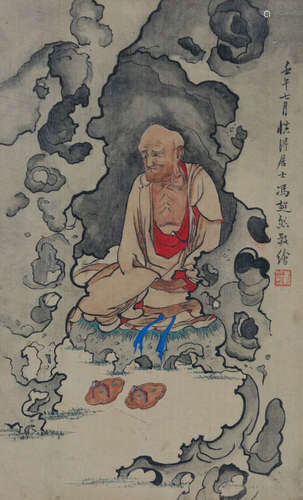 壬午七月慎得居士馮超然敬繪